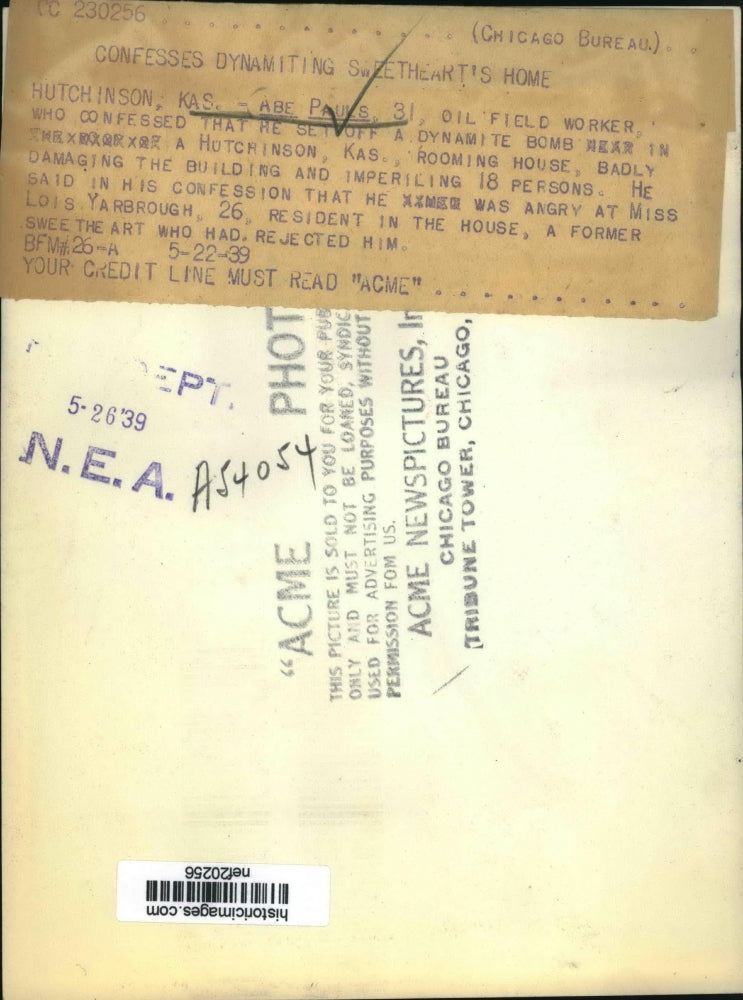 CC 230256 . . . . . . . . . . . . (CHICAGO BUREAU.) . .
CONFESSES DYNAMITING SWEETHEART'S HOME
HUTCHINSON, KAS. - ABE PAULS, 31, OIL FIELD WORKER,
WHO CONFESSED THAT HE SET OFF A DYNAMITE BOMB NEAR IN
A HUTCHINSON, KAS., ROOMING HOUSE, BADLY
DAMAGING THE BUILDING AND IMPERILING 18 PERSONS. HE
SAID IN HIS CONFESSION THAT HE WAS ANGRY AT MISS
LOIS YARBROUGH, 26, RESIDENT IN THE HOUSE, A FORMER
SWEETHEART WHO HAD REJECTED HIM.
BFM#26-A 5-22-39
YOUR CREDIT LINE MUST READ "ACME" . . . . . . . . . . .
EPT.
5-26'39
N.E.A.
A54054
"ACME PHOT
THIS PICTURE IS SOLD TO YOU FOR YOUR PUB
ONLY AND MUST NOT BE LOANED, SYNDIC
USED FOR ADVERTISING PURPOSES WITHOUT
PERMISSION FOM US.
ACME NEWSPICTURES, In
CHICAGO BUREAU
TRIBUNE TOWER, CHICAGO,
historicimages.com
nef20256